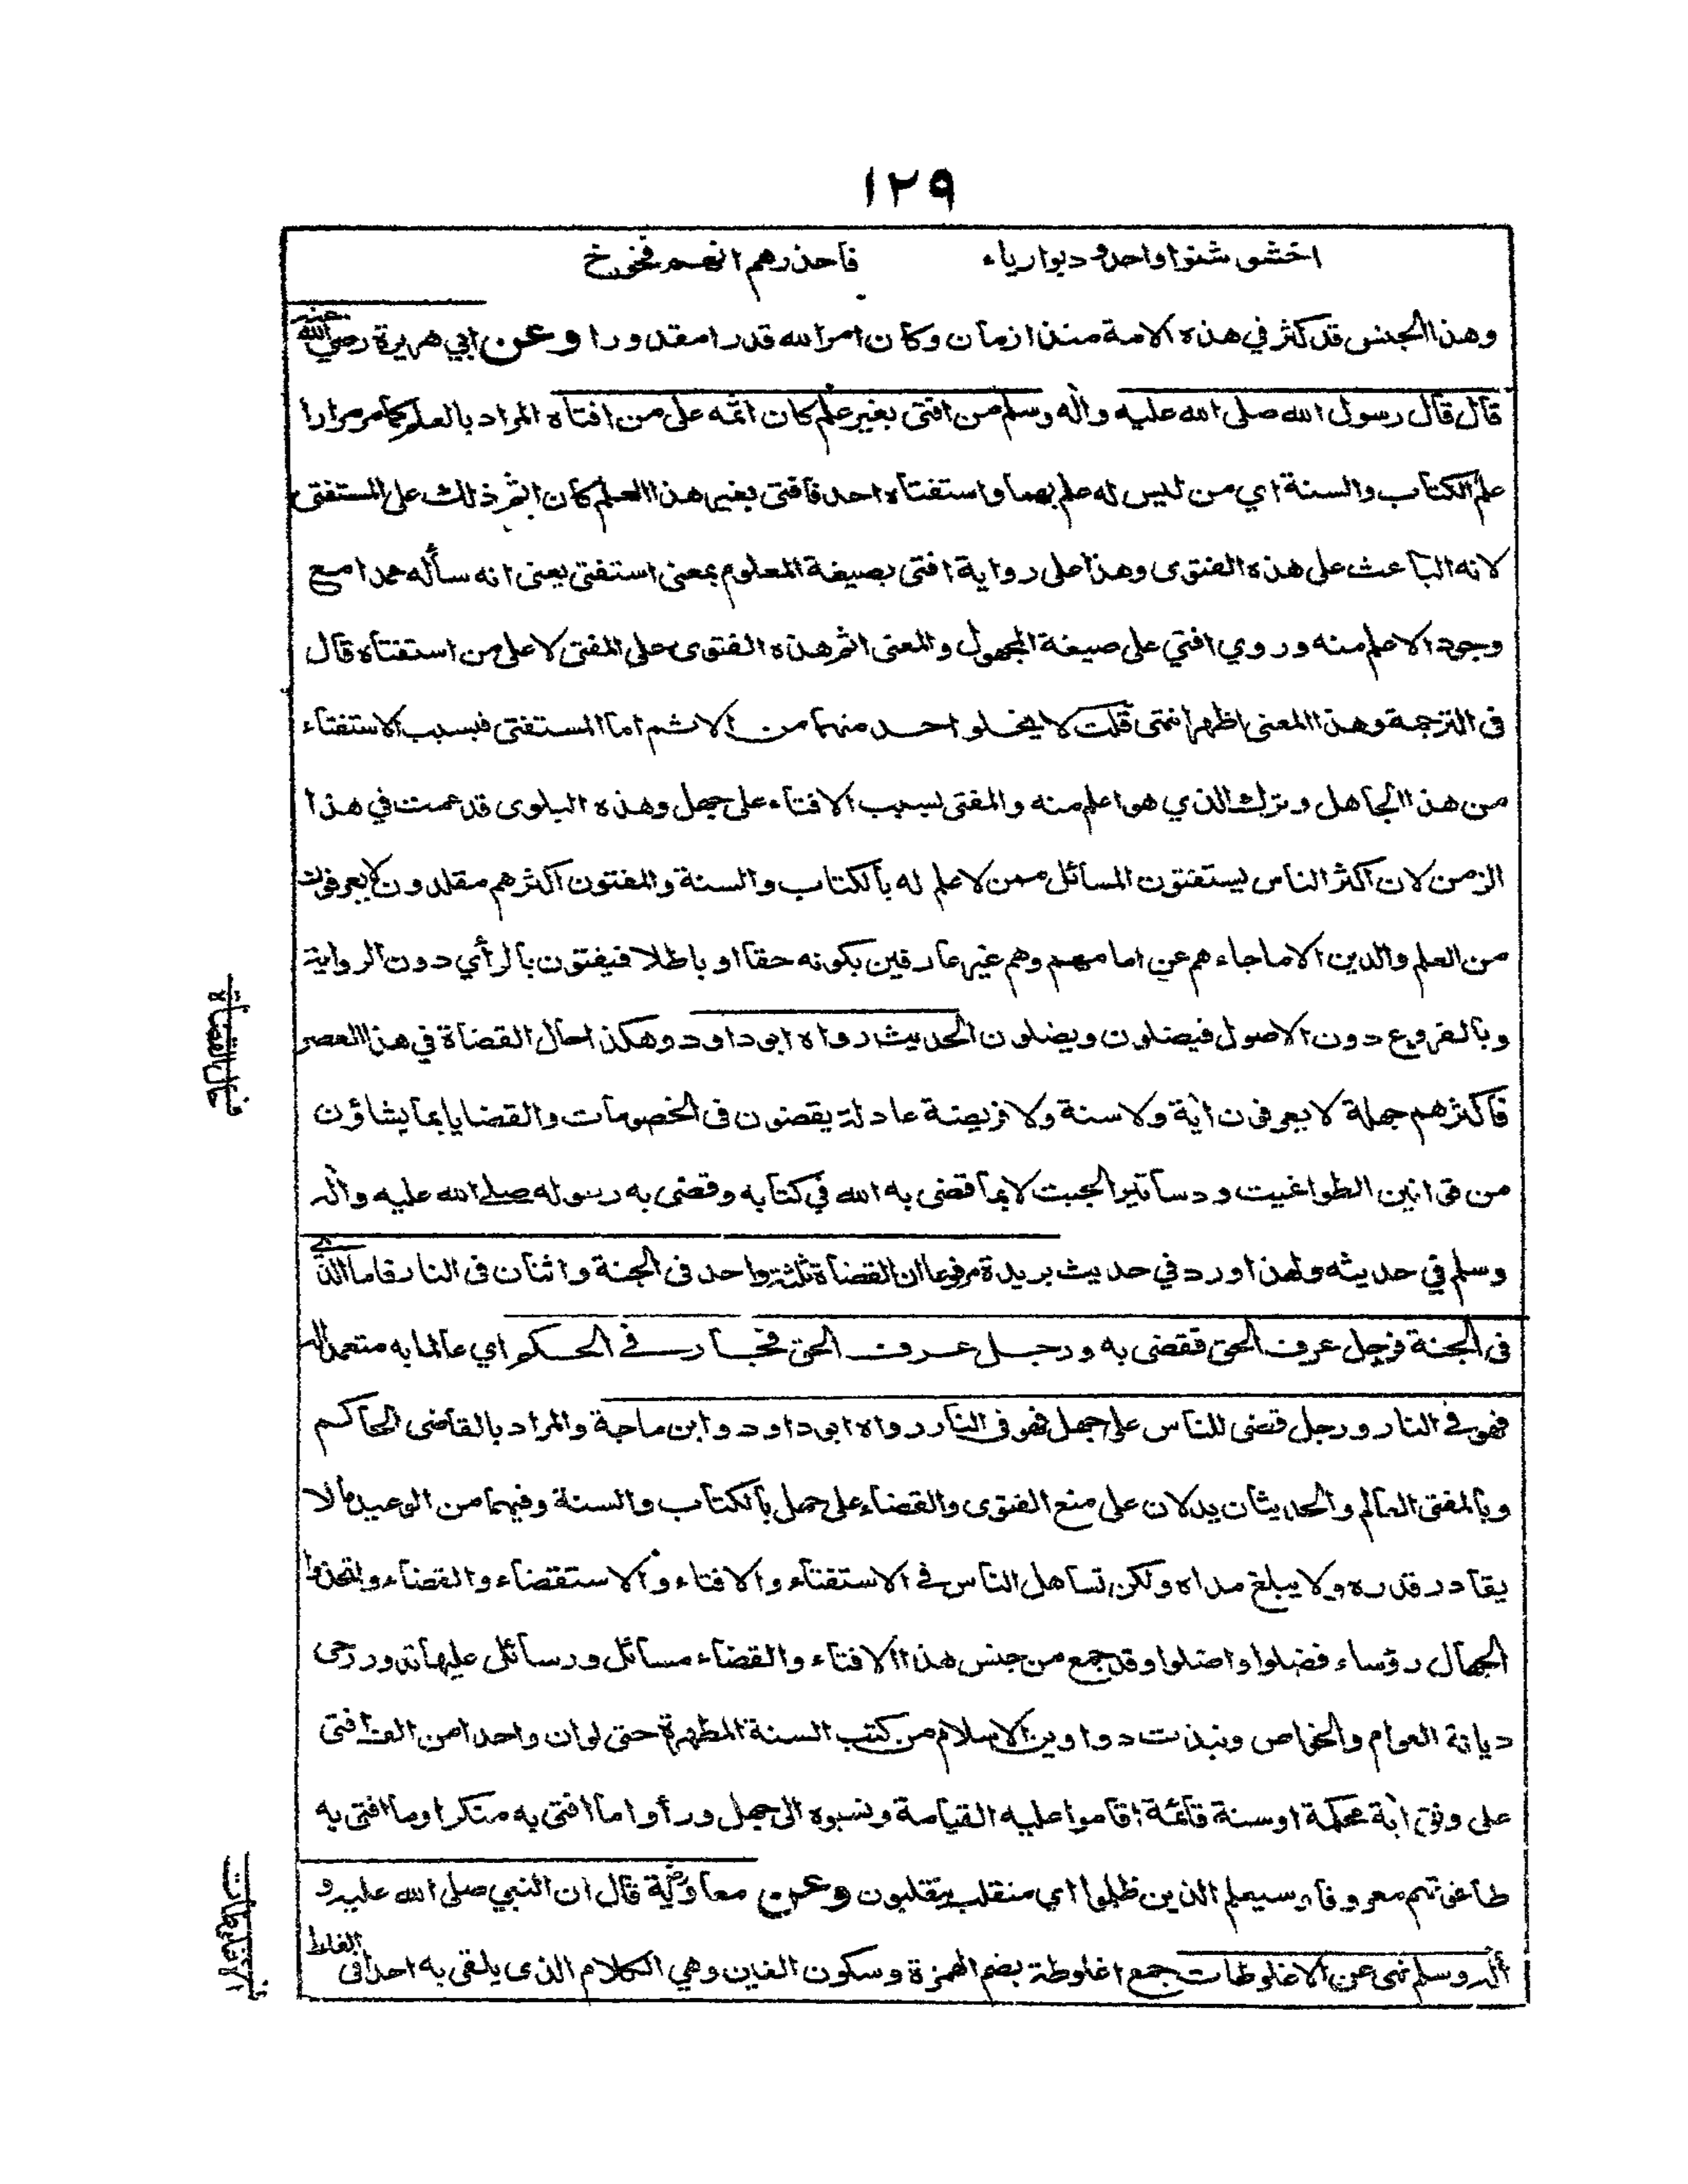 ١٢٩
اخشوشنوا واحدودبوا رياء فاحذرهم انهم فخوخ
وهذا الجنس قد كثر في هذه الامة منذ ازمان وكان امر الله قدرا مقدورا وعن ابي هريرة رضي الله عنه
قال قال رسول الله صلى الله عليه واٰله وسلم من افتى بغير علم كان اثمه على من افتاه المراد بالعلم كما مر مرارا
علم الكتاب والسنة اي من ليس له علم بهما واستفتاه احد فافتى بغير هذا العلم كان اثم ذلك على المستفتى
لانه الباعث على هذه الفتوى وهذا على رواية افتى بصيغة المعلوم بمعنى استفتى يعنى انه سأله عمدا مع
وجود الاعلم منه وروي افتي على صيغة المجهول والمعنى اثم هذه الفتوى على المفتى لا على من استفتاه قال
فى الترجمة وهذا المعنى اظهر انتهى قلت لا يخلو احد منهما من الاثم اما المستفتى فبسبب الاستفتاء
من هذا الجاهل وترك الذي هو اعلم منه والمفتى بسبب الافتاء على جهل وهذه البلوى قد عمت في هذا
الزمن لان اكثر الناس يستفتون المسائل ممن لا علم له بالكتاب والسنة والمفتون اكثرهم مقلدون لا يعرفون
من العلم والدين الا ما جاءهم عن امامهم وهم غير عارفين بكونه حقا او باطلا فيفتون بالرأي دون الرواية
وبالفروع دون الاصول فيضلون ويضلون الحديث رواه ابو داود وهكذا حال القضاة في هذا العصر
فاكثرهم جهلة لا يعرفون اٰية ولا سنة ولا فريضة عادلة يقضون فى الخصومات والقضايا بما يشاؤن
من قوانين الطواغيت ودساتير الجبت لا بما قضى به الله في كتابه وقضى به رسوله صلے الله عليه واٰله
وسلم في حديثه ولهذا ورد في حديث بريدة مرفوعا ان القضاة ثلثة واحد فى الجنة واثنان فى النار فاما الذے
فى الجنة فرجل عرف الحق فقضى به ورجل عرف الحق فجار فے الحكم اي عالما به متعمدا له
فهو فے النار ورجل قضى للناس على جهل فهو فى النار رواه ابو داود وابن ماجة والمراد بالقاضى الحاكم
وبالمفتى العالم والحديثان يدلان على منع الفتوى والقضاء على جهل بالكتاب والسنة وفيهما من الوعيد ما لا
يقادر قدره ولا يبلغ مداه ولكن تساهل الناس فے الاستفتاء والافتاء والاستقضاء والقضاء واتخذوا
الجهال رؤساء فضلوا واضلوا وقد جمع من جنس هذا الافتاء والقضاء مسائل ورسائل عليها تدور رحى
ديانة العوام والخواص ونبذت دواوين الاسلام من كتب السنة المطهرة حتى لو ان واحدا من الف افتى
على وفق اٰية محكمة او سنة قائمة اقاموا عليه القيامة ونسبوه الى جهل ورأوا ما افتى به منكرا وما افتى به
طاغوتهم معروفا وسيعلم الذين ظلموا اي منقلب ينقلبون وعن معاوية رض قال ان النبي صلى الله عليه و
اٰله وسلم نهى عن الاغلوطات جمع اغلوطة بضم الهمزة وسكون الغين وهي الكلام الذى يلقى به احدا فى الغلط
ف حال القضاة
ف الاغلوطات